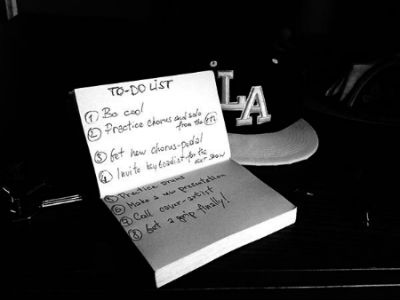 TO-DO LIST
1 Be cool
2 Practice chorus and solo
from the
3 Get new chorus-pedal
4 Invite keyboardist for the
our show
5 Practice
6 Make a new presentation
7 Call cover-artist
8 Get a grip finally!
LA